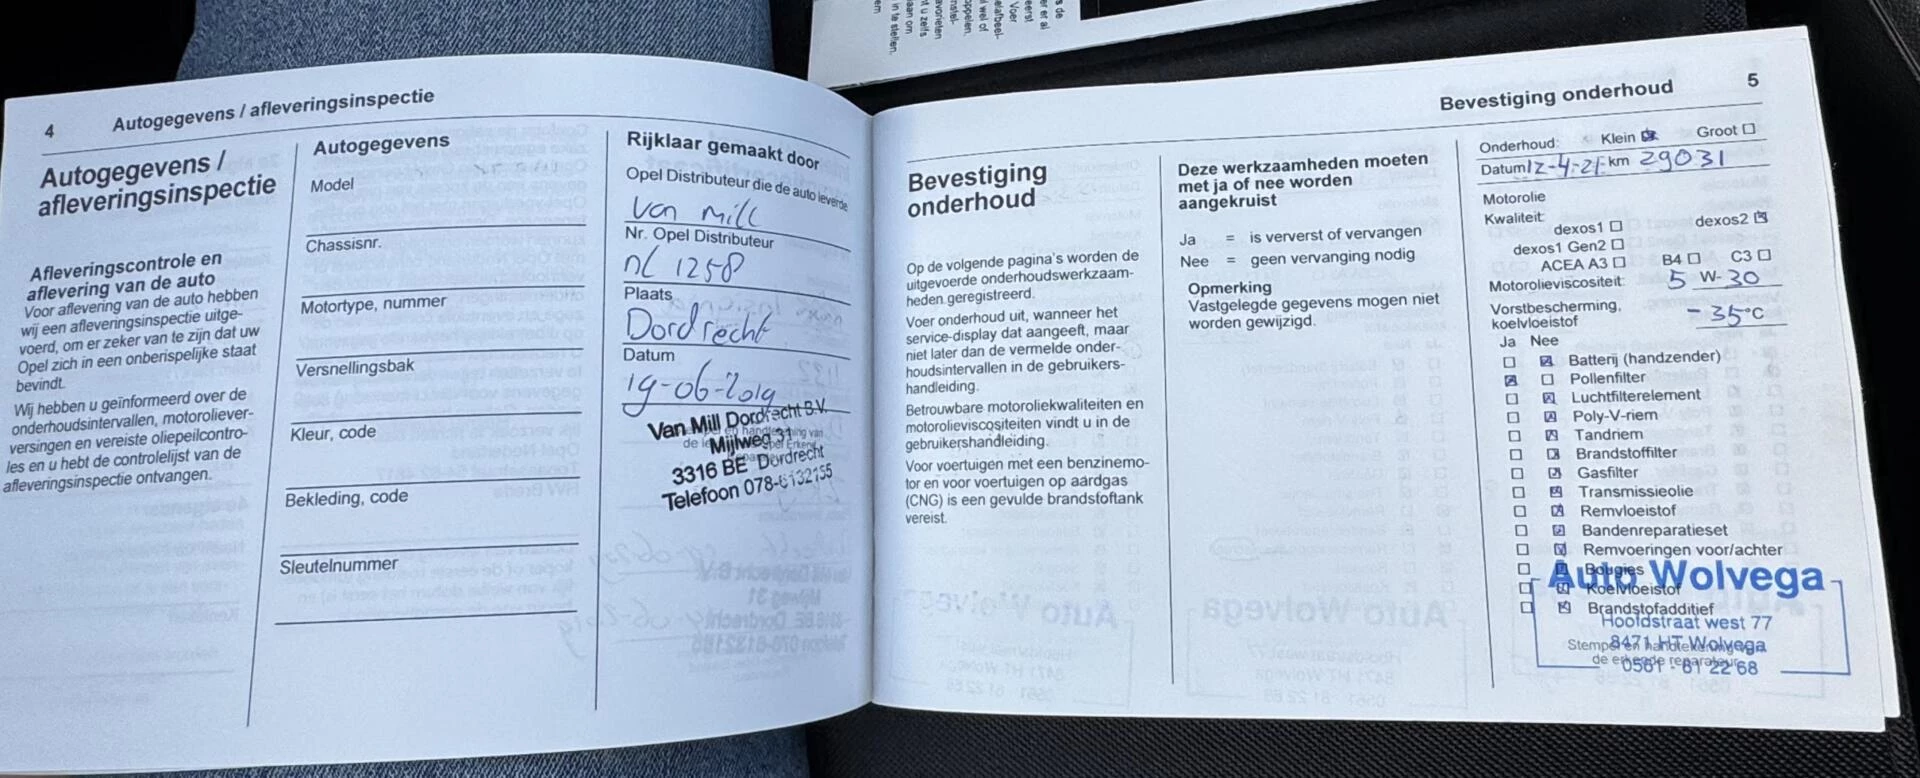 4 Autogegevens / afleveringsinspectie
Autogegevens /
afleveringsinspectie
Afleveringscontrole en
aflevering van de auto
Voor aflevering van de auto hebben
wij een afleveringsinspectie uitge-
voerd, om er zeker van te zijn dat uw
Opel zich in een onberispelijke staat
bevindt.
Wij hebben u geïnformeerd over de
onderhoudsintervallen, motoroliever-
versingen en vereiste oliepeilcontro-
les en u hebt de controlelijst van de
afleveringsinspectie ontvangen.
Autogegevens
Model
Chassisnr.
Motortype, nummer
Versnellingsbak
Kleur, code
Bekleding, code
Sleutelnummer
Rijklaar gemaakt door
Opel Distributeur die de auto leverde
Van Mill
Nr. Opel Distributeur
NL 1258
Plaats
Dordrecht
Datum
19-06-2019
Van Mill Dordrecht B.V.
Mijlweg 31
3316 BE Dordrecht
Telefoon 078-6132155
Bevestiging onderhoud 5
Bevestiging
onderhoud
Op de volgende pagina's worden de
uitgevoerde onderhoudswerkzaam-
heden geregistreerd.
Voer onderhoud uit, wanneer het
service-display dat aangeeft, maar
niet later dan de vermelde onder-
houdsintervallen in de gebruikers-
handleiding.
Betrouwbare motoroliekwaliteiten en
motorolieviscositeiten vindt u in de
gebruikershandleiding.
Voor voertuigen met een benzinemo-
tor en voor voertuigen op aardgas
(CNG) is een gevulde brandstoftank
vereist.
Deze werkzaamheden moeten
met ja of nee worden
aangekruist
Ja = is ververst of vervangen
Nee = geen vervanging nodig
Opmerking
Vastgelegde gegevens mogen niet
worden gewijzigd.
Onderhoud: Klein Groot
Datum 12-4-21 km 29031
Motorolie
Kwaliteit:
dexos1 dexos2
dexos1 Gen2
ACEA A3 B4 C3
Motorolieviscositeit: 5 W-30
Vorstbescherming,
koelvloeistof -35°C
Ja Nee
Batterij (handzender)
Pollenfilter
Luchtfilterelement
Poly-V-riem
Tandriem
Brandstoffilter
Gasfilter
Transmissieolie
Remvloeistof
Bandenreparatieset
Remvoeringen voor/achter
Bougies
Koelvloeistof
Brandstofadditief
Auto Wolvega
Hoofdstraat west 77
8471 HT Wolvega
0561 - 61 22 68
Stempel en handtekening van
de erkende reparateur